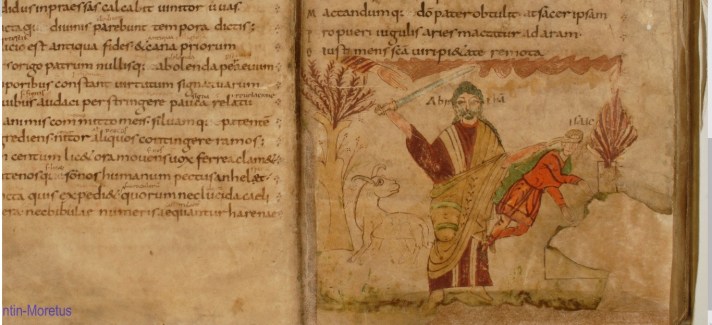 didus inpraessas calcabit vinitor uvas
cta q: divinis parebunt tempora dictis:
icio est antiqua fides & cana priorum
s origo patrum nullisq: abolenda per aeuum
poribus constant virtutum signa tuarum
uibus audaci perstringere pauca relatu
animis committo meis. siluamq: patentē
grediens nitor aliquos contingere ramos:
m centum lic& ora movens vox ferrea clam&
tenosq: sonos humanum pectus anhel&
cta quis expedi& quorum nec lucida caeli
era nec bibulae numeris aequantur harenae
M actandumq: dō pater obtulit at sacer ipsam
ro pueri iugulis aries mactatur ad aram.
O iusti mens scā viri pietate remota
isaac
ntin-Moretus